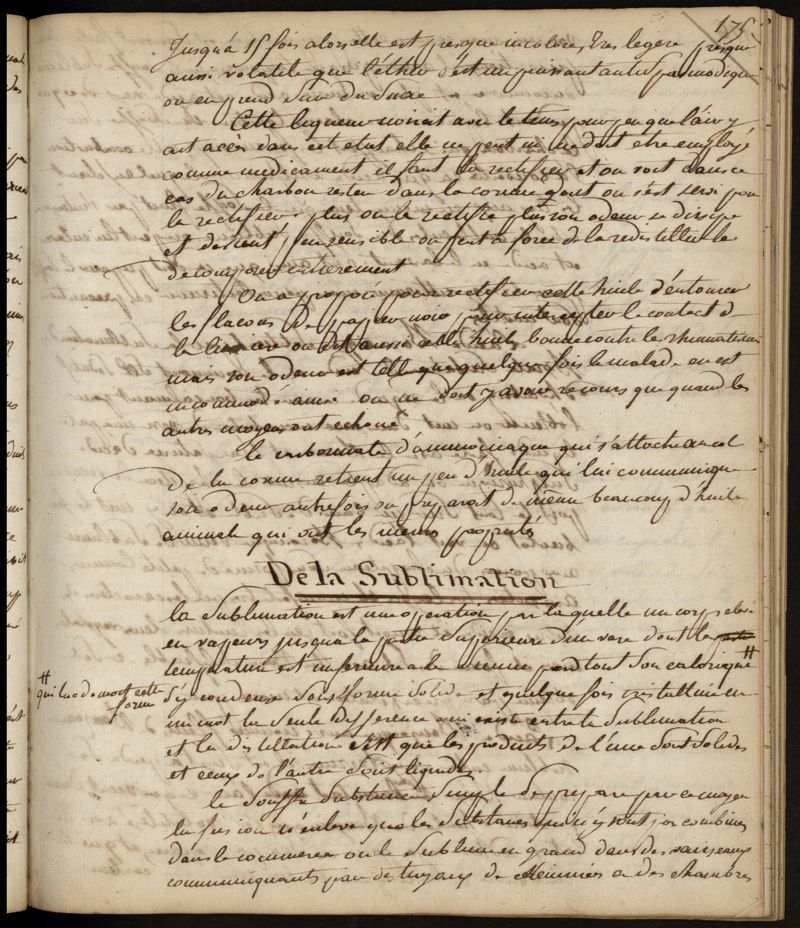 175
Jusqu'à 15 fois alors elle est presque incolore, tres legere presque
aussi volatile que l'éther c'est un puissant antispasmodique
on en prend sur du sucre
Cette liqueur noircit avec le tems pour peu que l'air y
ait accès dans cet etat elle ne peut ni ne doit etre employé
comme medicament il faut la rectifier et on voit dans ce
cas du charbon rester dans la cornue dont on s'est servi pour
la rectifier plus on la rectifie plus son odeur se dissipe
et devient peu sensible on peut a force de la redistiller la
decomposer entierement
On a proposé pour rectifier cette huile d'entourer
les flacons de papier noir pour intercepter le contact de
la lumiere on dit aussi cette huile bonne contre le rhumatisme
mais son odeur est telle que quelque fois le malade en est
incommodé aussi on ne doit y avoir recours que quand les
autres moyens ont echoué
le carbonate d'ammoniaque qui s'attache au col
de la cornue retient un peu d'huile qui lui communique
son odeur autrefois on preparait de meme beaucoup d'huile
animale qui ont les memes proprietés
De la Sublimation
la Sublimation est une operation par laquelle un corps elevé
en vapeurs jusqu'a la partie superieure d'un vase dont la
temperature est inferieure a la sienne perd tout son calorique #
# qui lui donnoit cette
forme
s'y condense sous forme solide et quelque fois cristalline en
un mot la seule difference qui existe entre la sublimation
et la distillation c'est que les produits de l'une sont solides
et ceux de l'autre sont liquides.
le Souffre substance simple se prepare par ce moyen
la fusion n'enleve que les substances qui n'y sont pas combinées
dans le commerce on le sublime en grand dans des vaisseaux
communiquants par des tuyaux de cheminées a des chambres